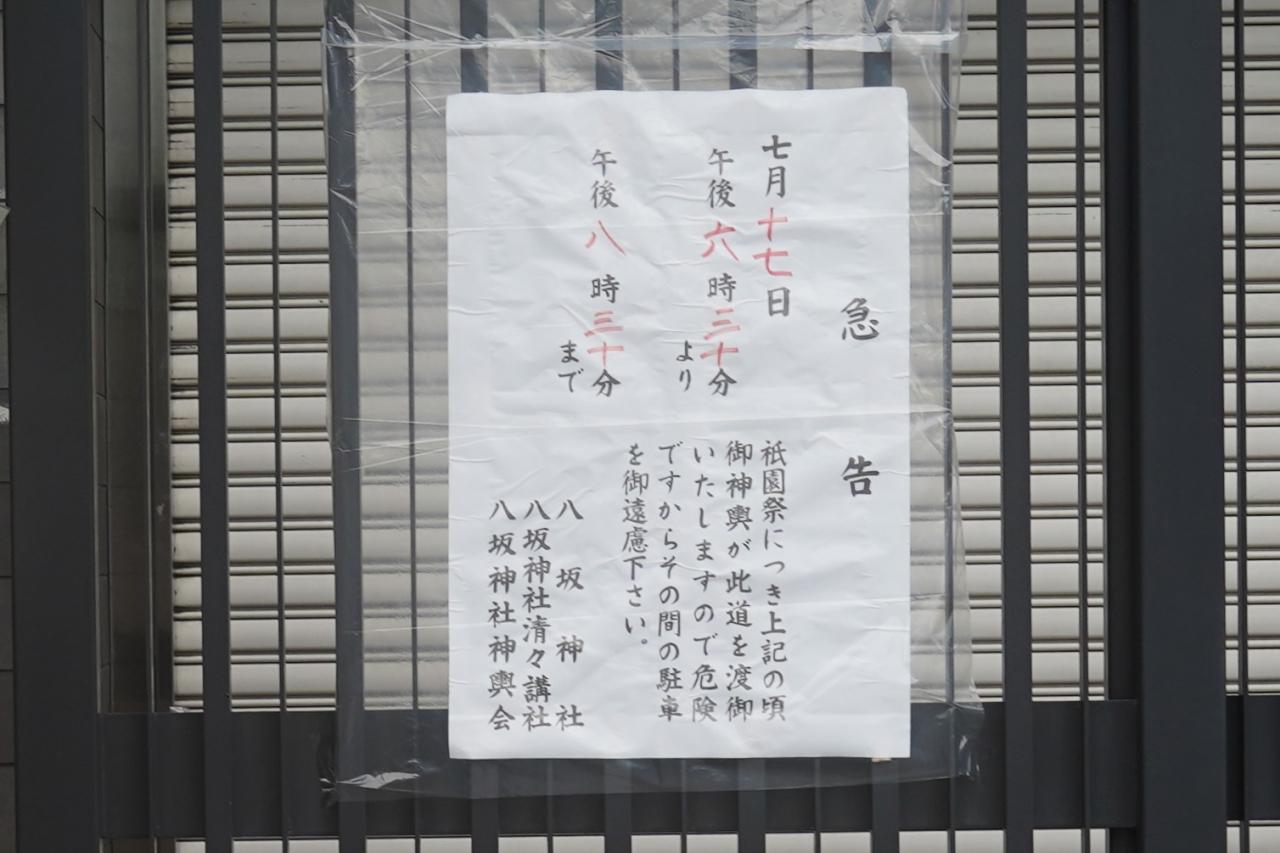 急告
七月十七日
午後六時三十分より
午後八時三十分まで
祇園祭につき上記の頃
御神輿が此道を渡御
いたしますので危険
ですからその間の駐車
を御遠慮下さい。
八坂神社
八坂神社清々講社
八坂神社神輿会